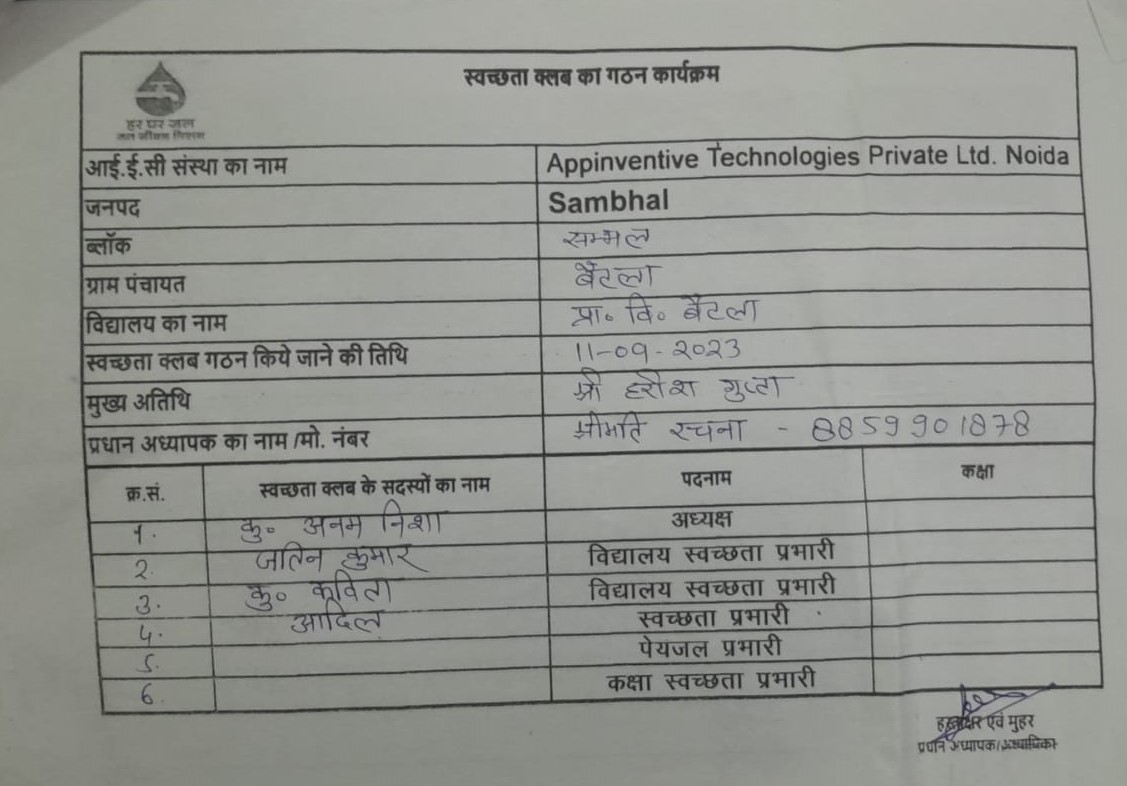 स्वच्छता क्लब का गठन कार्यक्रम
हर घर जल
जल जीवन मिशन
आई.ई.सी संस्था का नाम Appinventive Technologies Private Ltd. Noida
जनपद Sambhal
ब्लॉक सम्भल
ग्राम पंचायत बैटला
विद्यालय का नाम प्रा॰ वि॰ बैटला
स्वच्छता क्लब गठन किये जाने की तिथि 11-09-2023
मुख्य अतिथि श्री हरीश गुप्ता
प्रधान अध्यापक का नाम /मो. नंबर श्रीमति रचना - 8859901878
क्र.सं. स्वच्छता क्लब के सदस्यों का नाम पदनाम कक्षा
1. कु॰ अनम निशा अध्यक्ष
2. जतिन कुमार विद्यालय स्वच्छता प्रभारी
3. कु॰ कविता विद्यालय स्वच्छता प्रभारी
4. आदिल स्वच्छता प्रभारी
5. पेयजल प्रभारी
6. कक्षा स्वच्छता प्रभारी
हस्ताक्षर एवं मुहर
प्रधान अध्यापक/अध्यापिका